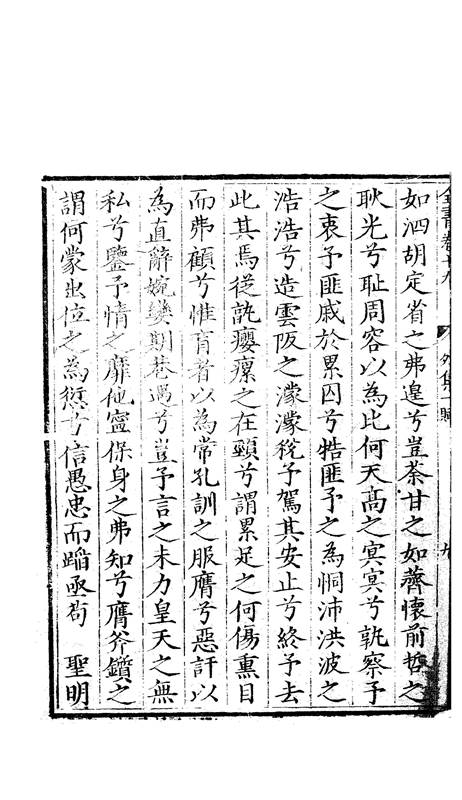 如泗胡定省之弗遑兮豈荼甘之如薺懷前哲之
耿光兮耻周容以為比何天高之冥冥兮孰察予
之衷予匪戚於累囚兮牿匪予之為恫沛洪波之
浩浩兮造雲阪之濛濛稅予駕其安止兮終予去
此其焉從孰癭瘰之在頸兮謂累足之何傷熏目
而弗顧兮惟盲者以為常孔訓之服膺兮惡訐以
為直辭婉孌期巷遇兮豈予言之未力皇天之無
私兮鑒予情之靡他寧保身之弗知兮膺斧鑕之
謂何蒙出位之為愆兮信愚忠而蹈亟苟 聖明